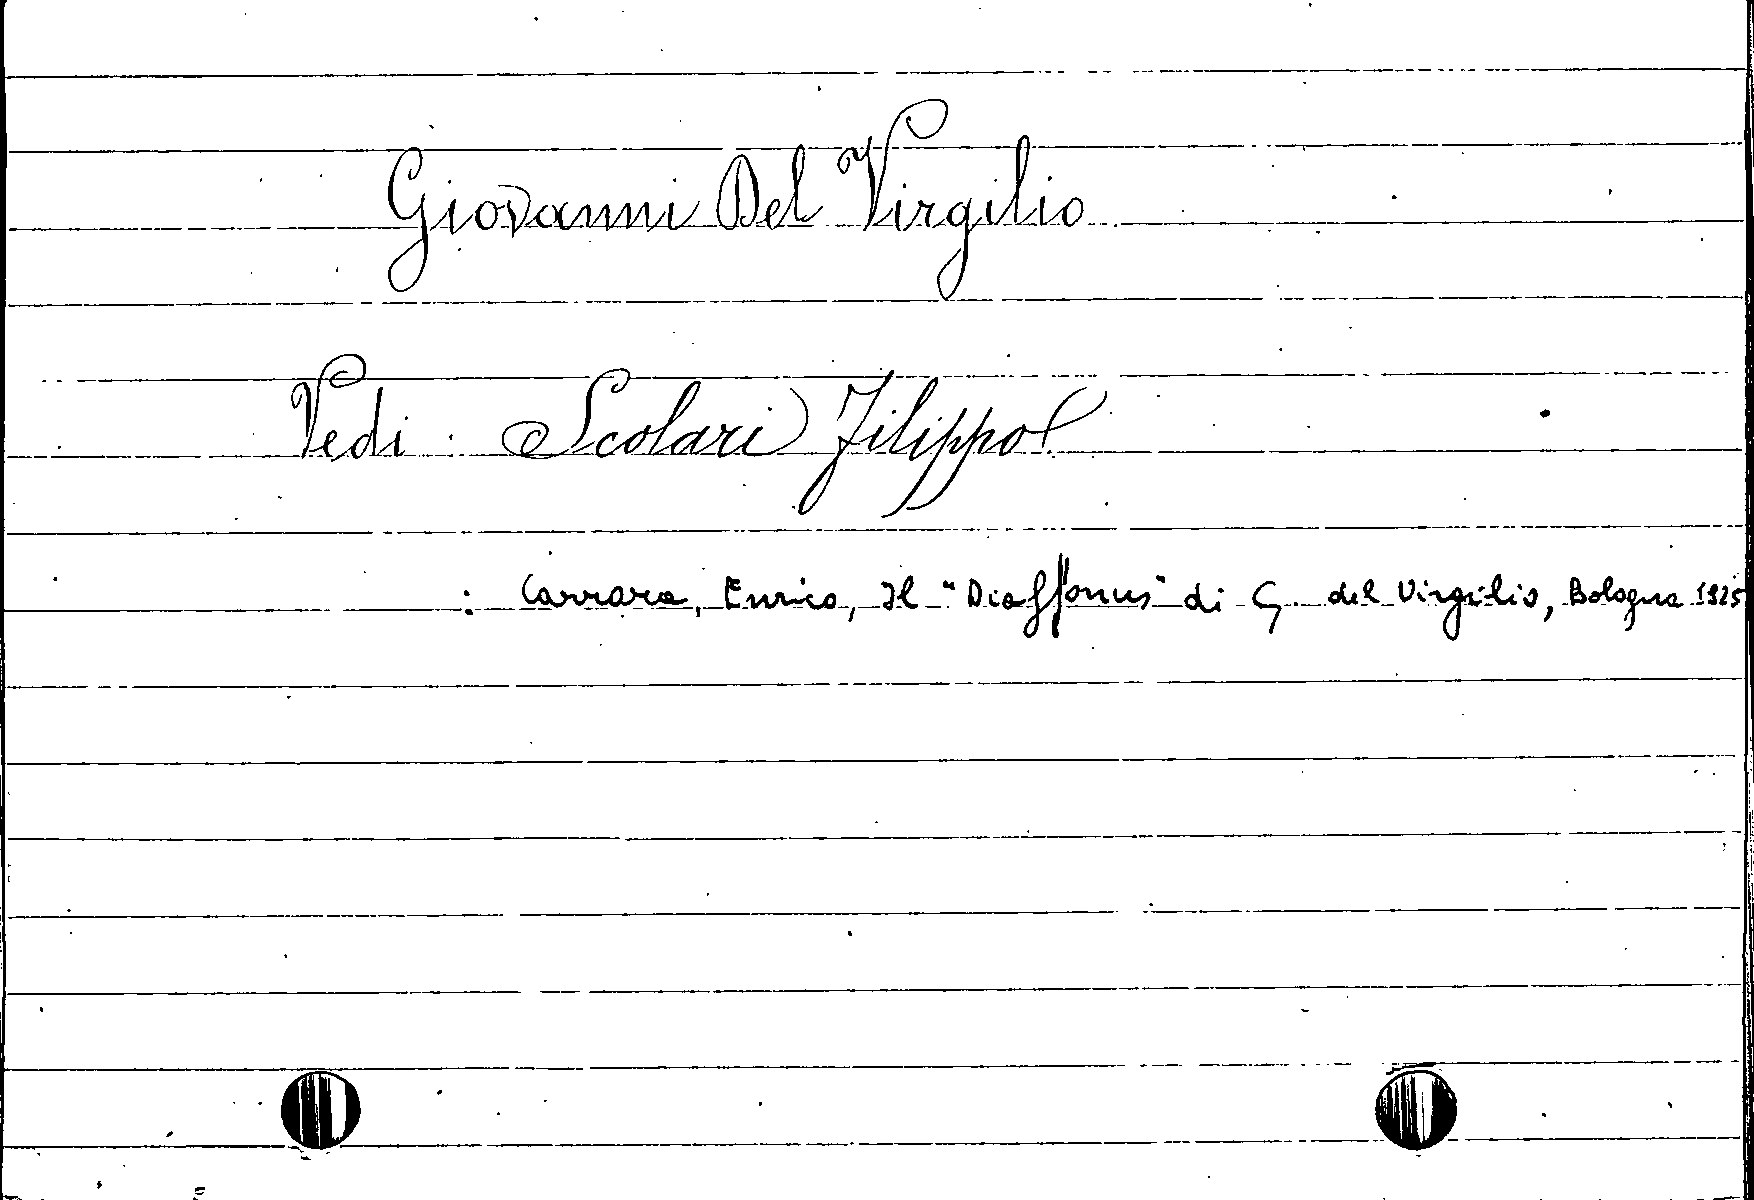 Giovanni Del Virgilio
Vedi : Scolari Filippo
: Carrara, Enrico, Il "Diaffonus" di G. del Virgilio, Bologna 1925